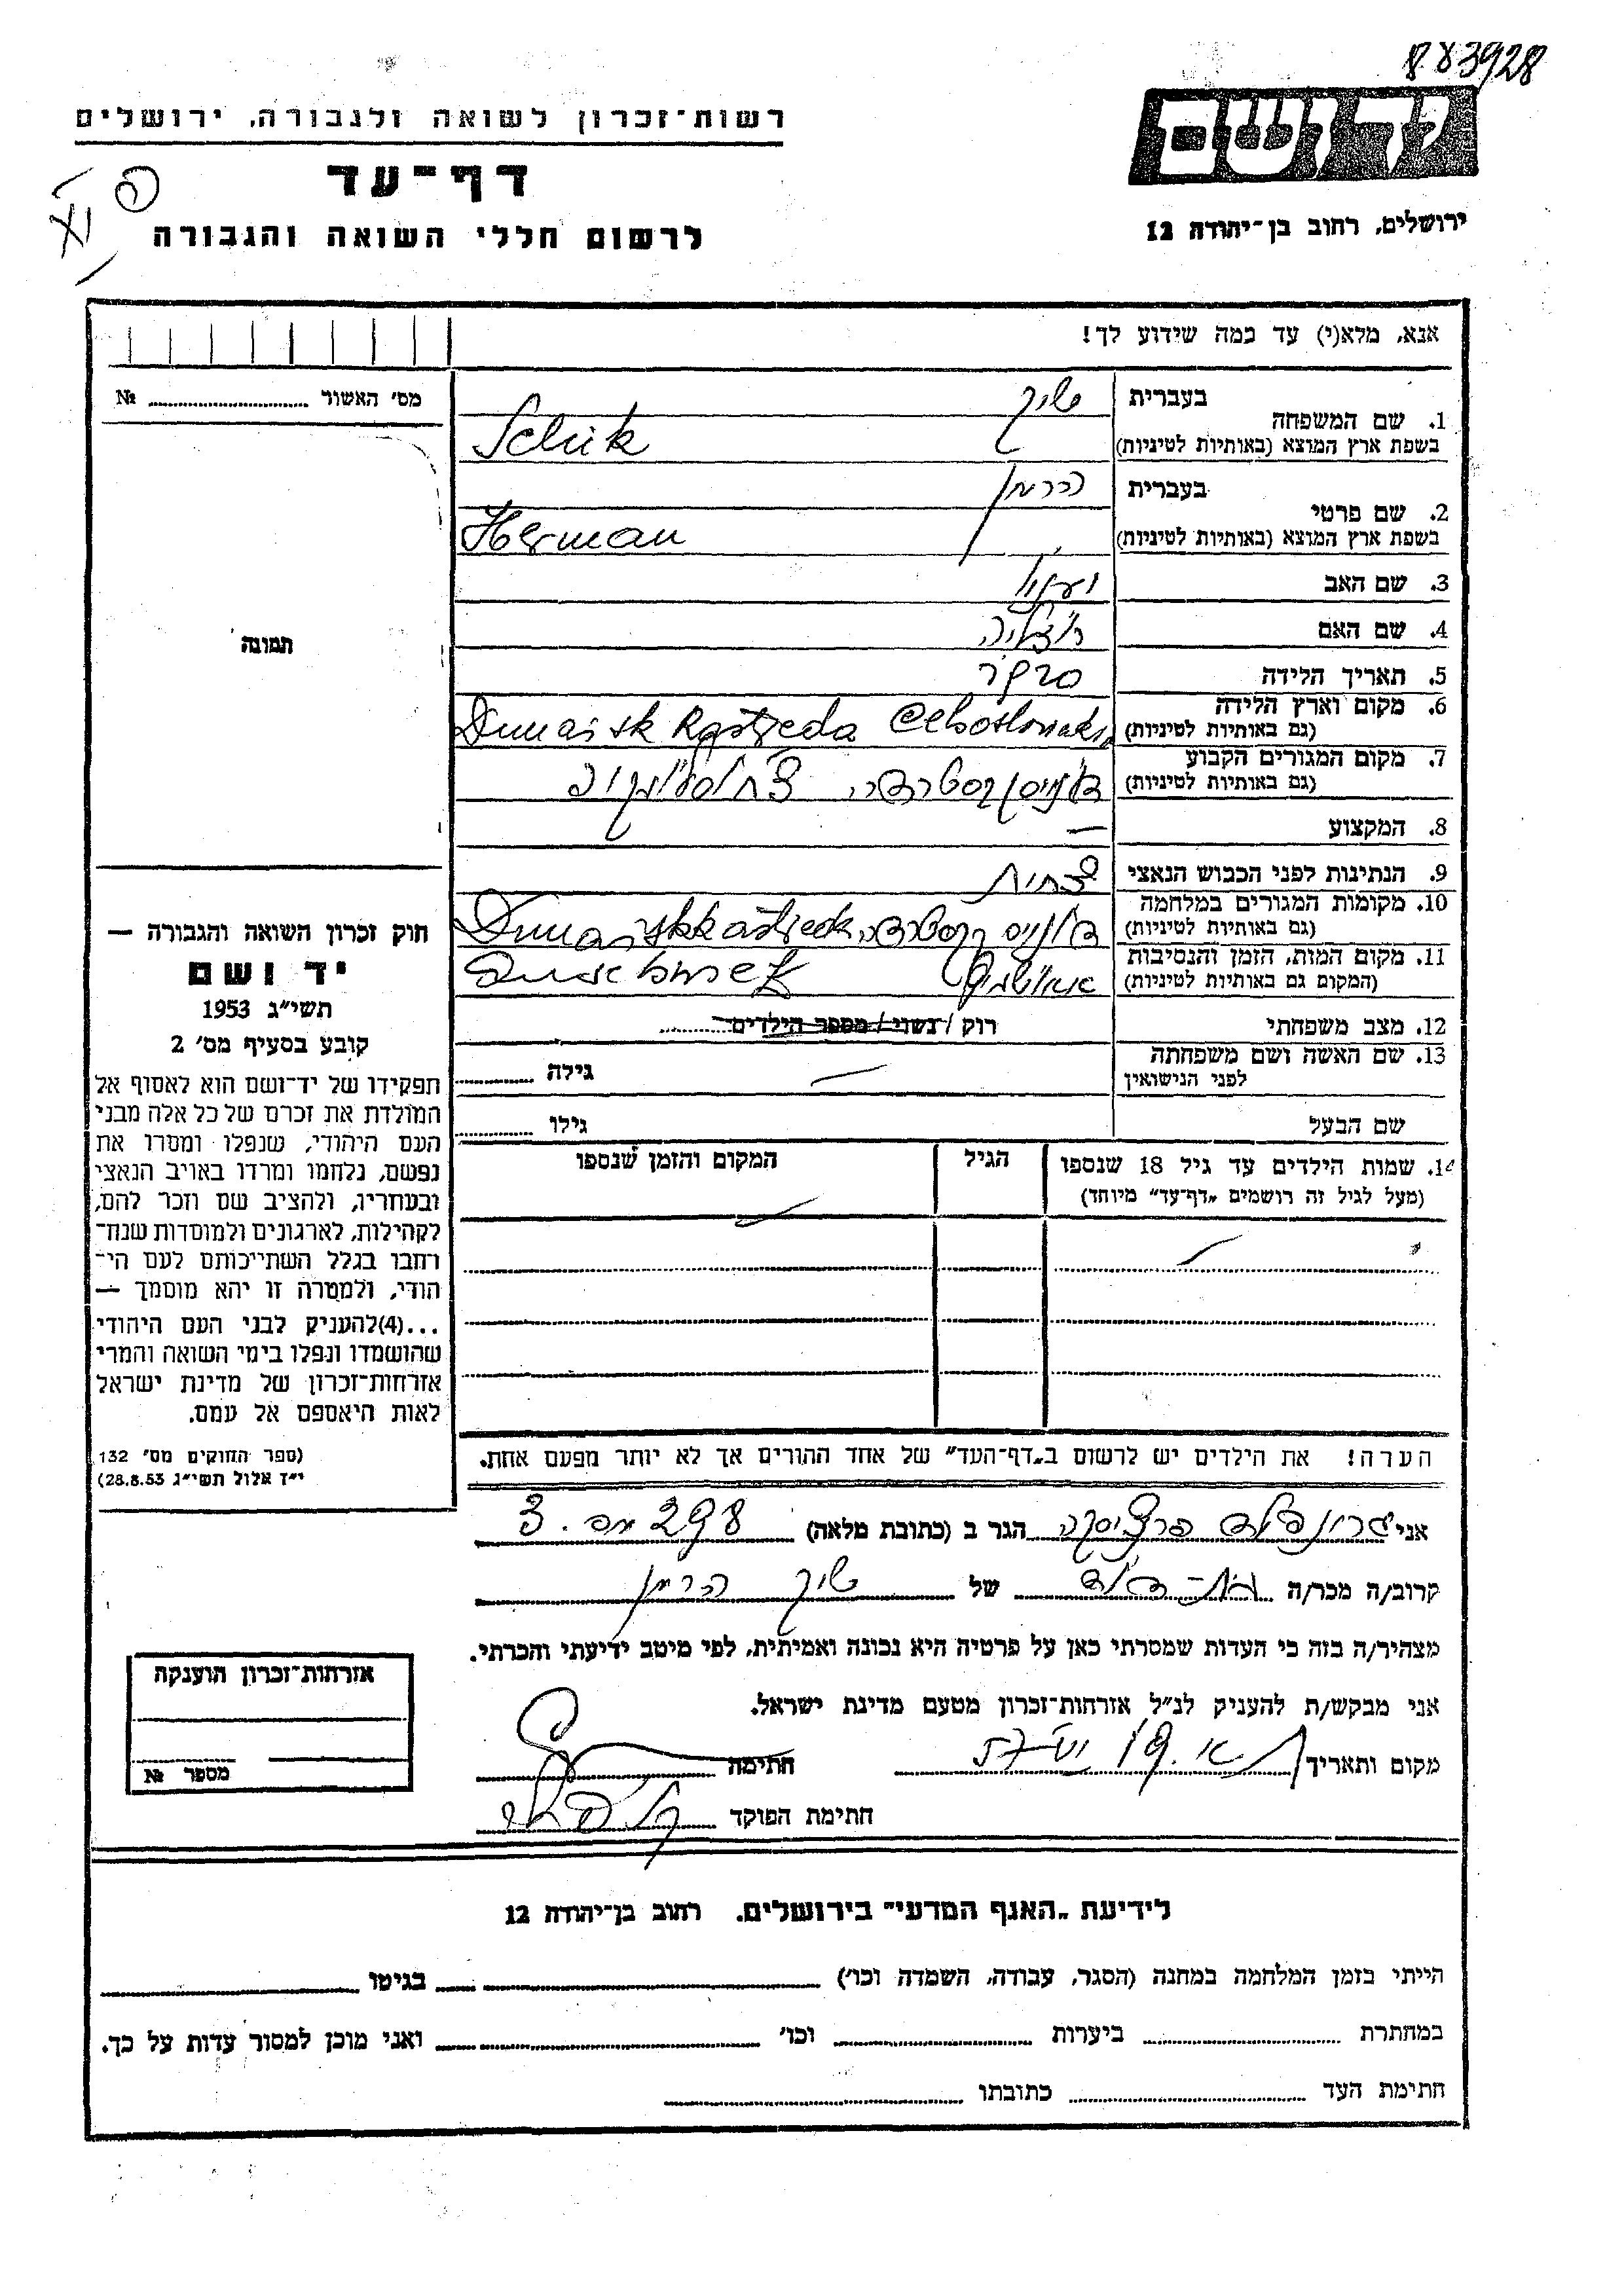 883928
רשות-זכרון לשואה ולגבורה, ירושלים
דף-עד
לרשום חללי השואה והגבורה
ידושם
ירושלים, רחוב בן-יהודה 12
אנא, מלא(י) עד כמה שידוע לך!
מס' האשור № 
1. שם המשפחה בעברית שיק
בשפת ארץ המוצא (באותיות לטיניות) Schik
2. שם פרטי בעברית הרמן
בשפת ארץ המוצא (באותיות לטיניות) Herman
3. שם האב
4. שם האם
5. תאריך הלידה
6. מקום וארץ הלידה
(גם באותיות לטיניות)
7. מקום המגורים הקבוע
(גם באותיות לטיניות)
8. המקצוע —
9. הנתינות לפני הכבוש הנאצי
10. מקומות המגורים במלחמה
(גם באותיות לטיניות)
11. מקום המות, הזמן והנסיבות
(המקום גם באותיות לטיניות)
12. מצב משפחתי רוק / נשוי / מספר הילדים
13. שם האשה ושם משפחתה
לפני הנישואין גילה
שם הבעל גילו
14. שמות הילדים עד גיל 18 שנספו הגיל המקום והזמן שנספו
(מעל לגיל זה רושמים „דף-עד" מיוחד)
תמונה
חוק זכרון השואה והגבורה —
יד ושם
תשי"ג 1953
קובע בסעיף מס' 2
תפקידו של יד-ושם הוא לאסוף אל
המולדת את זכרם של כל אלה מבני
העם היהודי, שנפלו ומסרו את
נפשם, נלחמו ומרדו באויב הנאצי
ובעוזריו, ולהציב שם וזכר להם,
לקהילות, לארגונים ולמוסדות שנח-
רבו בגלל השתייכותם לעם הי-
הודי, ולמטרה זו יהא מוסמך —
...(4)להעניק לבני העם היהודי
שהושמדו ונפלו בימי השואה והמרי
אזרחות-זכרון של מדינת ישראל
לאות היאספם אל עמם.
(ספר החוקים מס' 132
י"ד אלול תשי"ג 28.8.53)
הערה! את הילדים יש לרשום ב„דף-העד" של אחד ההורים אך לא יותר מפעם אחת.
אני הגר ב (כתובת מלאה)
קרוב/ה מכר/ה של שיק הרמן
מצהיר/ה בזה כי העדות שמסרתי כאן על פרטיה היא נכונה ואמיתית, לפי מיטב ידיעתי והכרתי.
אני מבקש/ת להעניק לנ"ל אזרחות-זכרון מטעם מדינת ישראל.
מקום ותאריך חתימה
חתימת הפוקד
אזרחות-זכרון הוענקה
מספר №
לידיעת „האגף המדעי" בירושלים. רחוב בן-יהודה 12
הייתי בזמן המלחמה במחנה (הסגר, עבודה, השמדה וכו') בגיטו
במחתרת ביערות וכו' ואני מוכן למסור עדות על כך.
חתימת העד כתובתו